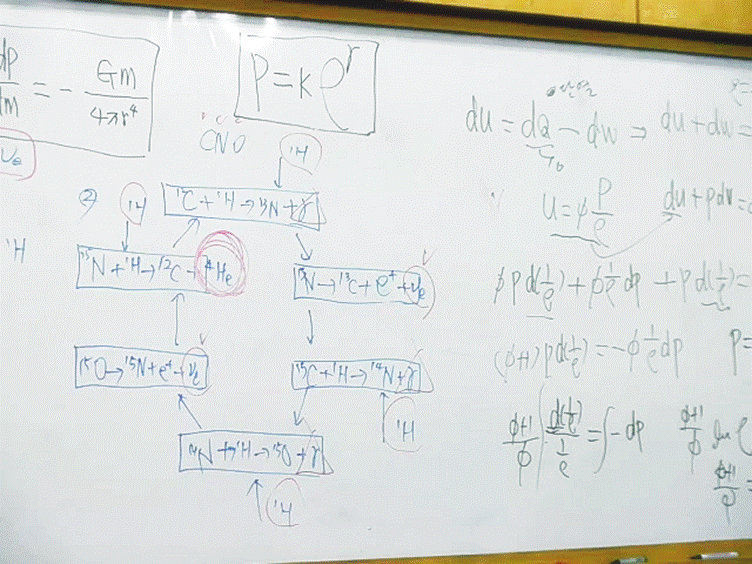 dp/dm = - Gm/4πr⁴
P = kρ^γ
CNO
¹H
¹²C + ¹H → ¹³N + γ
② ¹H
¹⁵N + ¹H → ¹²C + ⁴He
¹³N → ¹³C + e⁺ + νe
νe
¹H
¹⁵O → ¹⁵N + e⁺ + νe
¹³C + ¹H → ¹⁴N + γ
¹H
¹⁴N + ¹H → ¹⁵O + γ
¹H
단열
du = dQ - dw ⇒ du + dw =
u = φ P/ρ
du + pdv =
φ P d(1/ρ) + φ 1/ρ dp + P d(1/ρ) =
(φ+1) P d(1/ρ) = -φ 1/ρ dp
P =
φ+1/φ ∫ d(1/ρ)/(1/ρ) = ∫ - dp
φ+1/φ ln ρ
φ+1/φ =